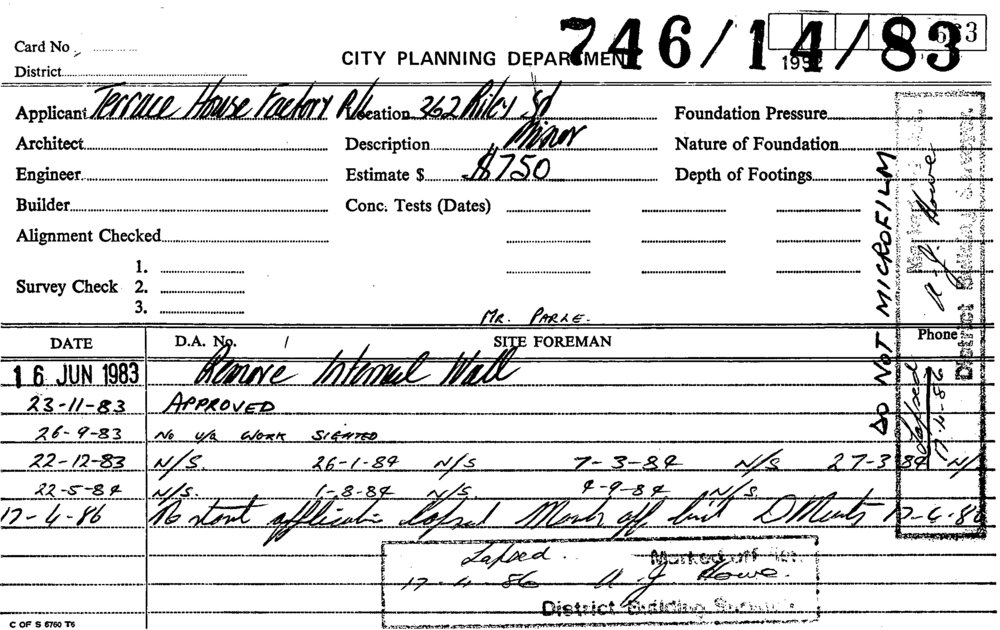 Card No
CITY PLANNING DEPARTMENT 746/14/83
District
Applicant Terrace House Factory P/L Location 362 Riley St Foundation Pressure
Architect Description Minor Nature of Foundation
Engineer Estimate $ $750 Depth of Footings
Builder Conc. Tests (Dates)
Alignment Checked
1.
Survey Check 2.
3.
DO NOT MICROFILM
Marked off
A. J. Howe
District Building Surveyor
Lapsed
17-4-86
MR. PARLE.
DATE D.A. No. SITE FOREMAN Phone
16 JUN 1983 Remove Internal Wall
23-11-83 APPROVED
26-9-83 No WORK SIGHTED
22-12-83 N/S. 26-1-84 N/S 7-3-84 N/S 27-3-84 N/S
22-5-84 N/S. 1-8-84 N/S. 4-9-84 N/S.
17-4-86 No start application lapsed Mark off list 17-4-86
Lapsed. Marked off
17-4-86 A J Howe.
District Building Surveyor
C OF S 5760 T5